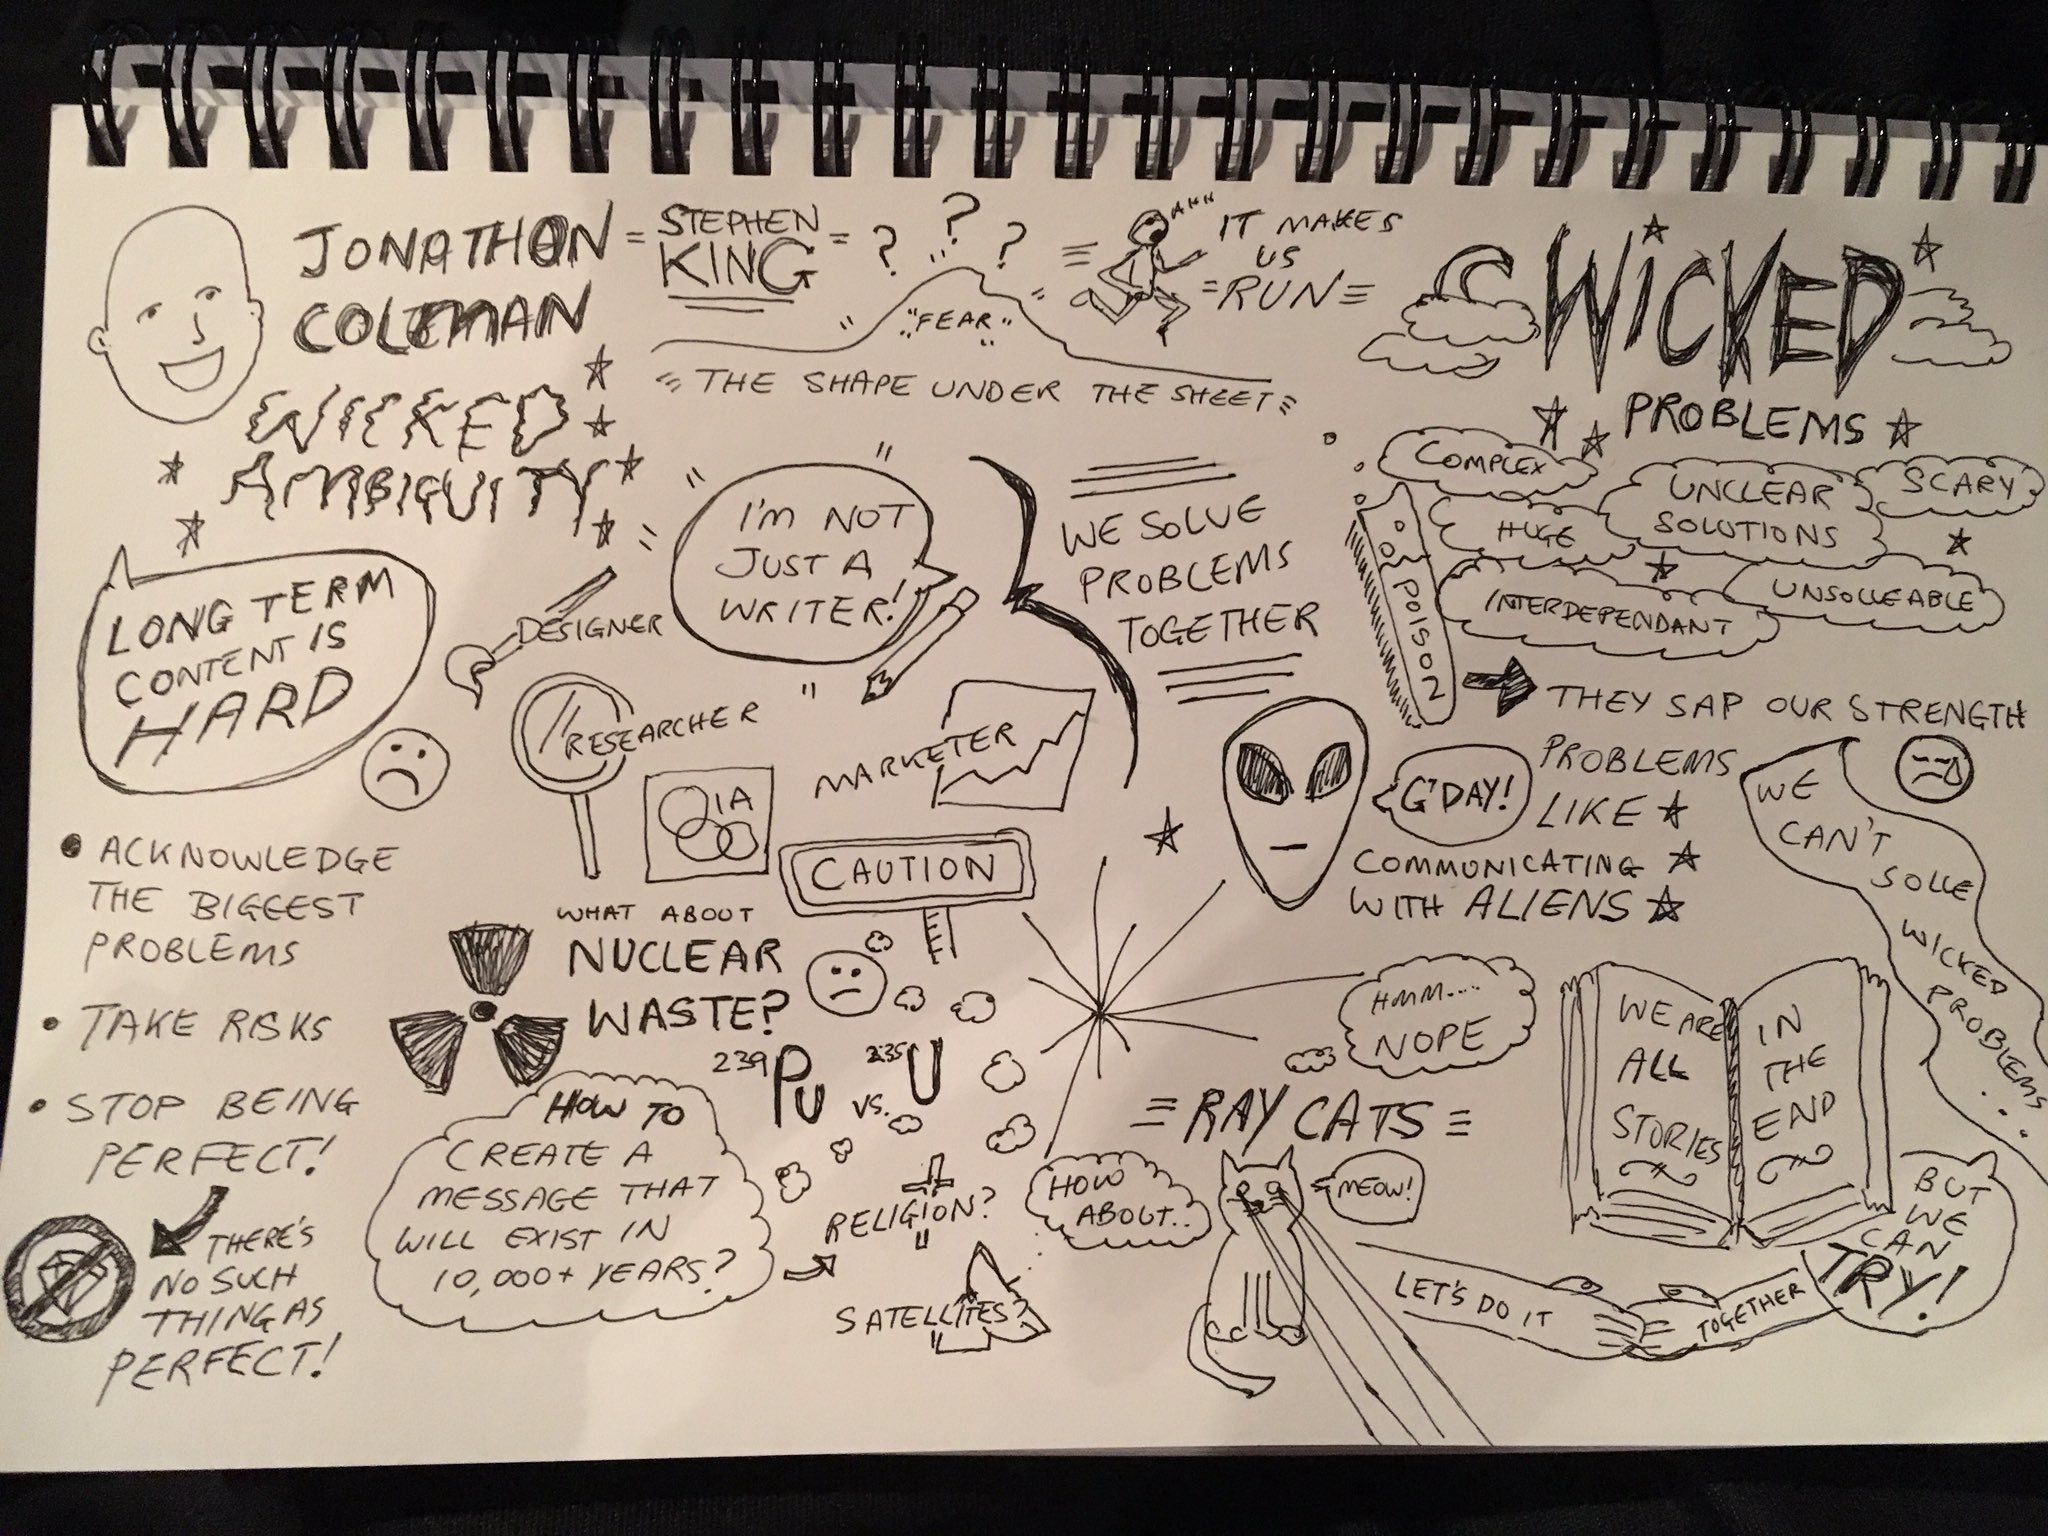 JONATHON
COLEMAN
WICKED
AMBIGUITY
= STEPHEN
KING =
? ? ?
"FEAR"
THE SHAPE UNDER THE SHEET
AHH
IT MAKES
US
= RUN =
WICKED
PROBLEMS
COMPLEX
HUGE
UNCLEAR
SOLUTIONS
SCARY
INTERDEPENDANT
UNSOLVEABLE
POISON
THEY SAP OUR STRENGTH
LONG TERM
CONTENT IS
HARD
I'M NOT
JUST A
WRITER!
DESIGNER
RESEARCHER
IA
MARKETER
WE SOLVE
PROBLEMS
TOGETHER
G'DAY!
PROBLEMS
LIKE
COMMUNICATING
WITH ALIENS
WE
CAN'T
SOLVE
WICKED
PROBLEMS
...
• ACKNOWLEDGE
THE BIGGEST
PROBLEMS
• TAKE RISKS
• STOP BEING
PERFECT!
THERE'S
NO SUCH
THING AS
PERFECT!
CAUTION
WHAT ABOUT
NUCLEAR
WASTE?
239 Pu vs. 235 U
HOW TO
CREATE A
MESSAGE THAT
WILL EXIST IN
10,000+ YEARS?
RELIGION?
SATELLITES?
HOW
ABOUT..
HMM....
NOPE
= RAY CATS =
MEOW!
WE ARE
ALL
STORIES
IN
THE
END
LET'S DO IT
TOGETHER
BUT
WE
CAN
TRY!